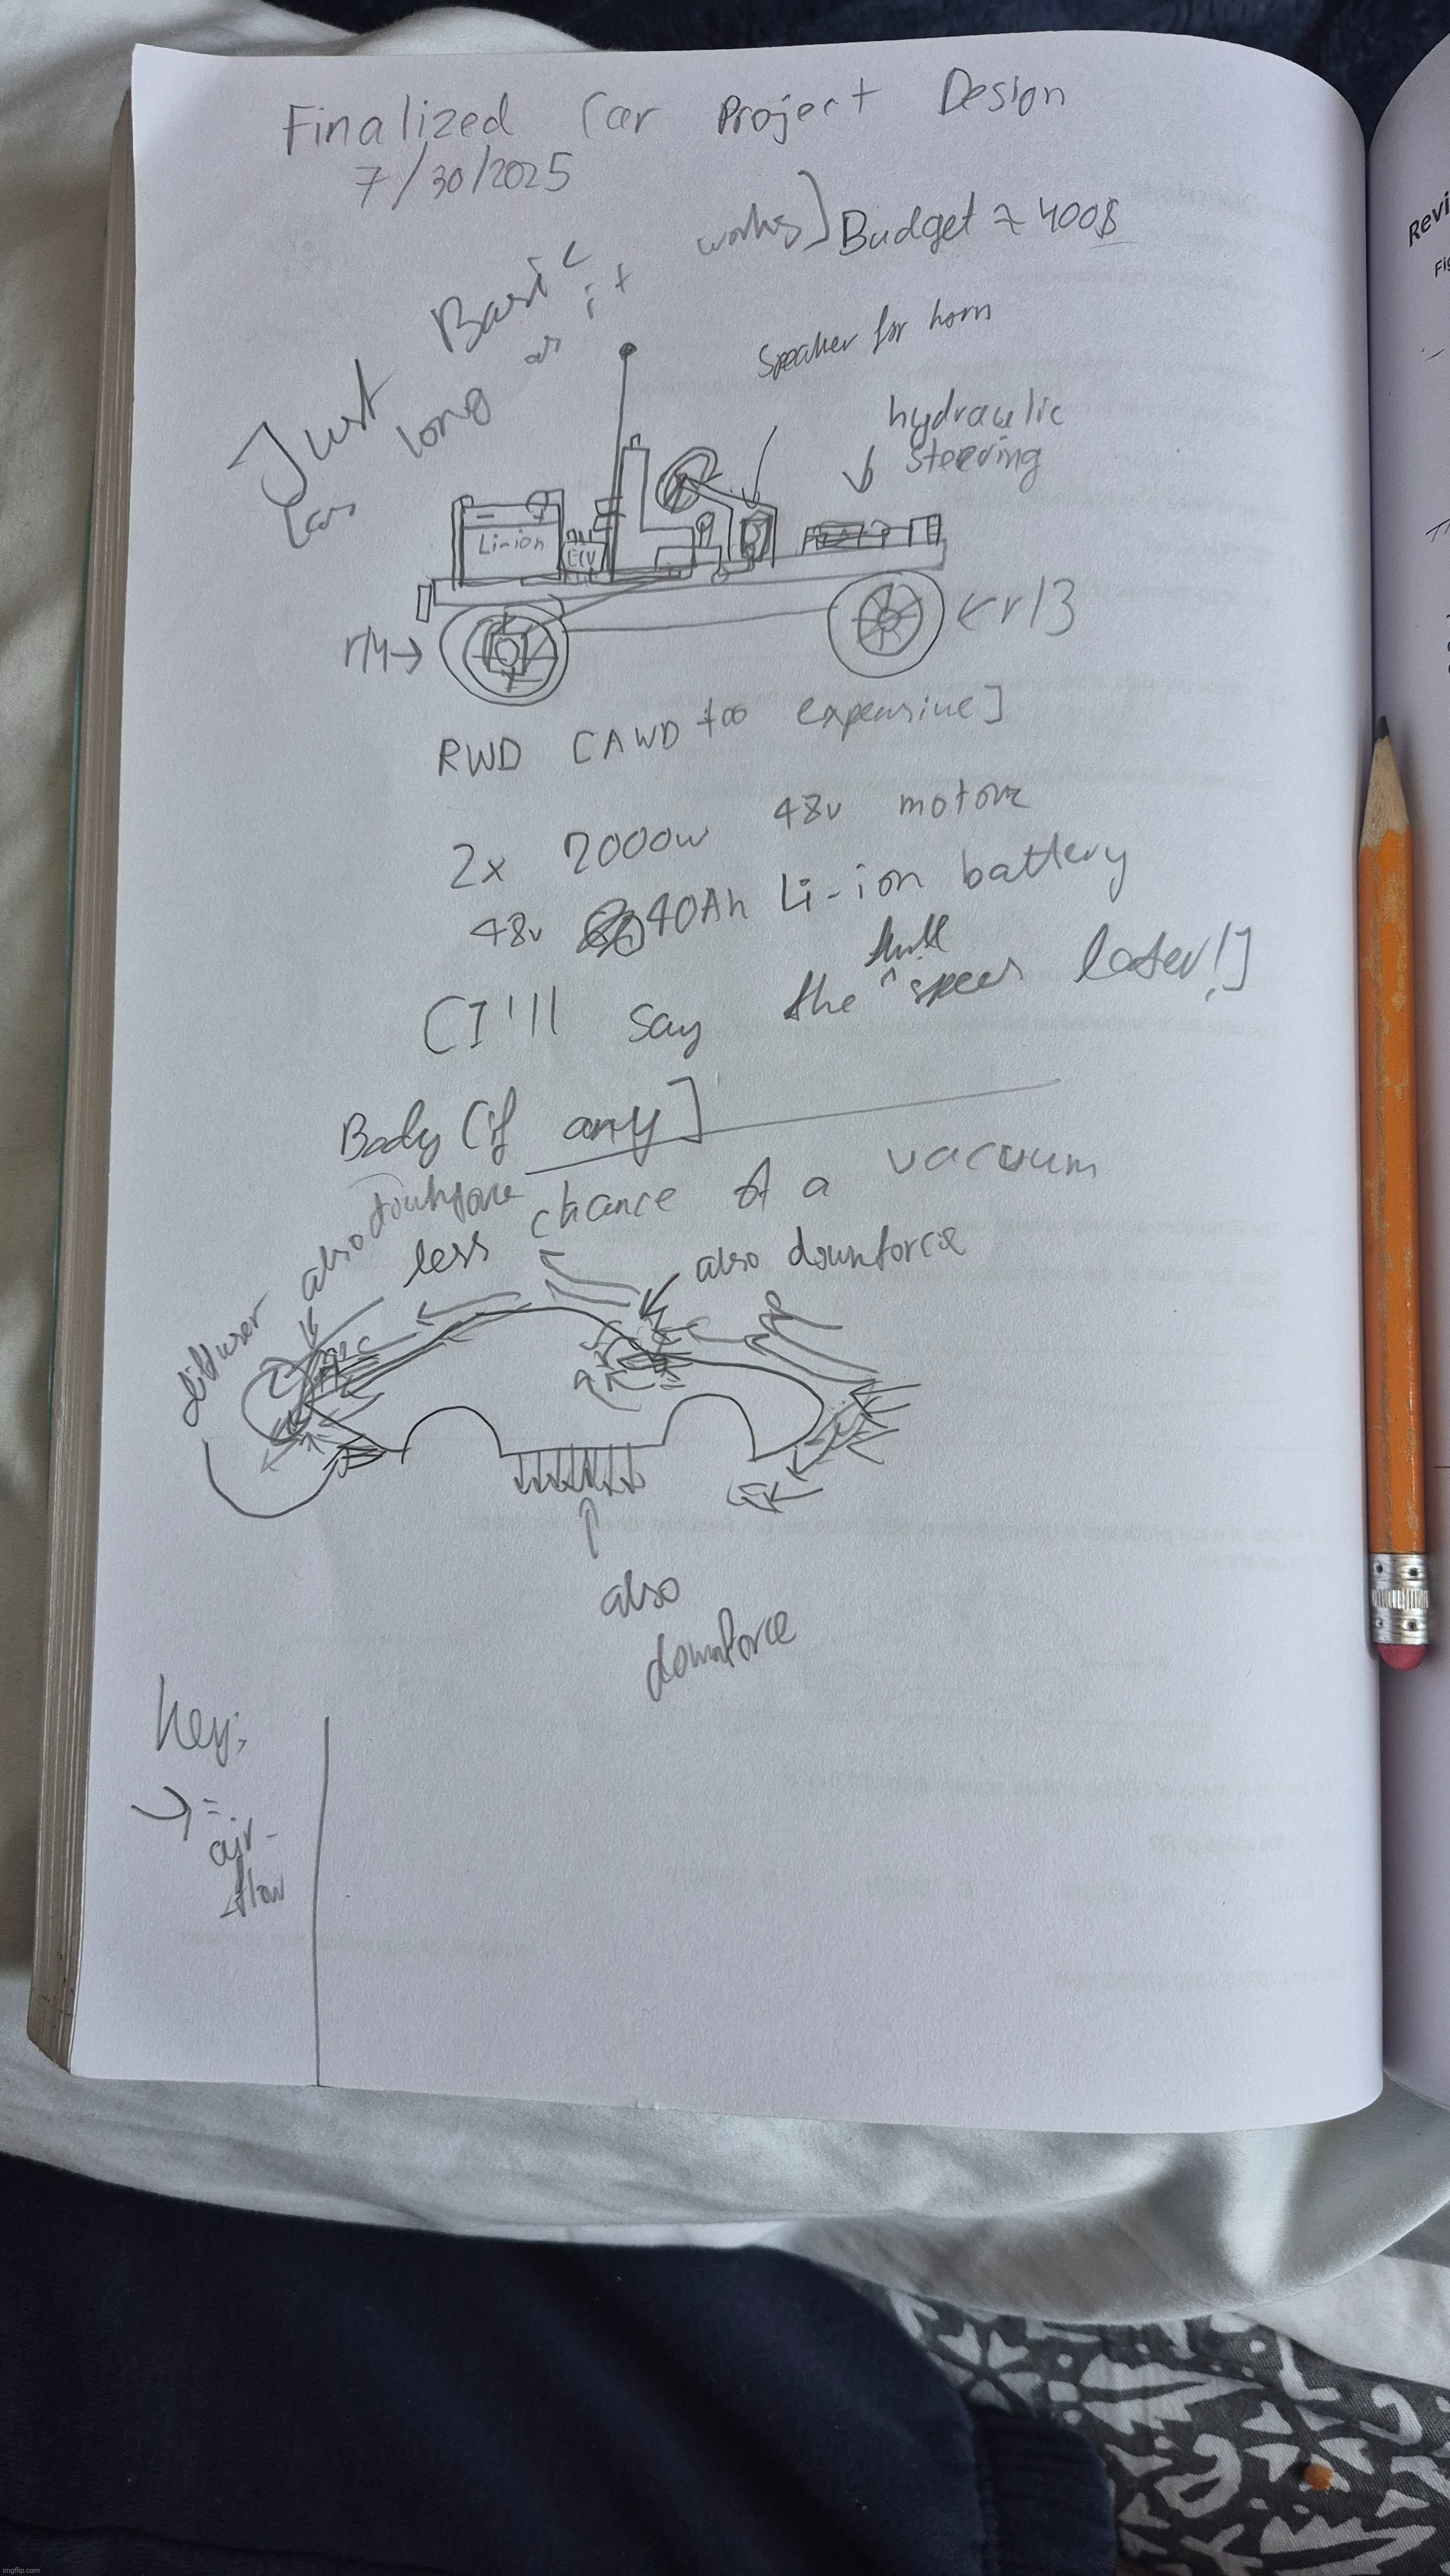 Finalized Car Project Design
7/30/2025
Just Basic
[as long as it works]
Budget ≈ 400$
Speaker for horn
hydraulic
steering
Li-ion
ECU
r/4→
←r/3
RWD [AWD too expensive]
2x 2000w 48v motors
48v 40Ah Li-ion battery
[I'll say the full specs later!]
Body [if any]
less chance of a vacuum
also downforce
diffuser
also downforce
also
downforce
Key:
=
air-
flow
Revi
Fig
imgflip.com